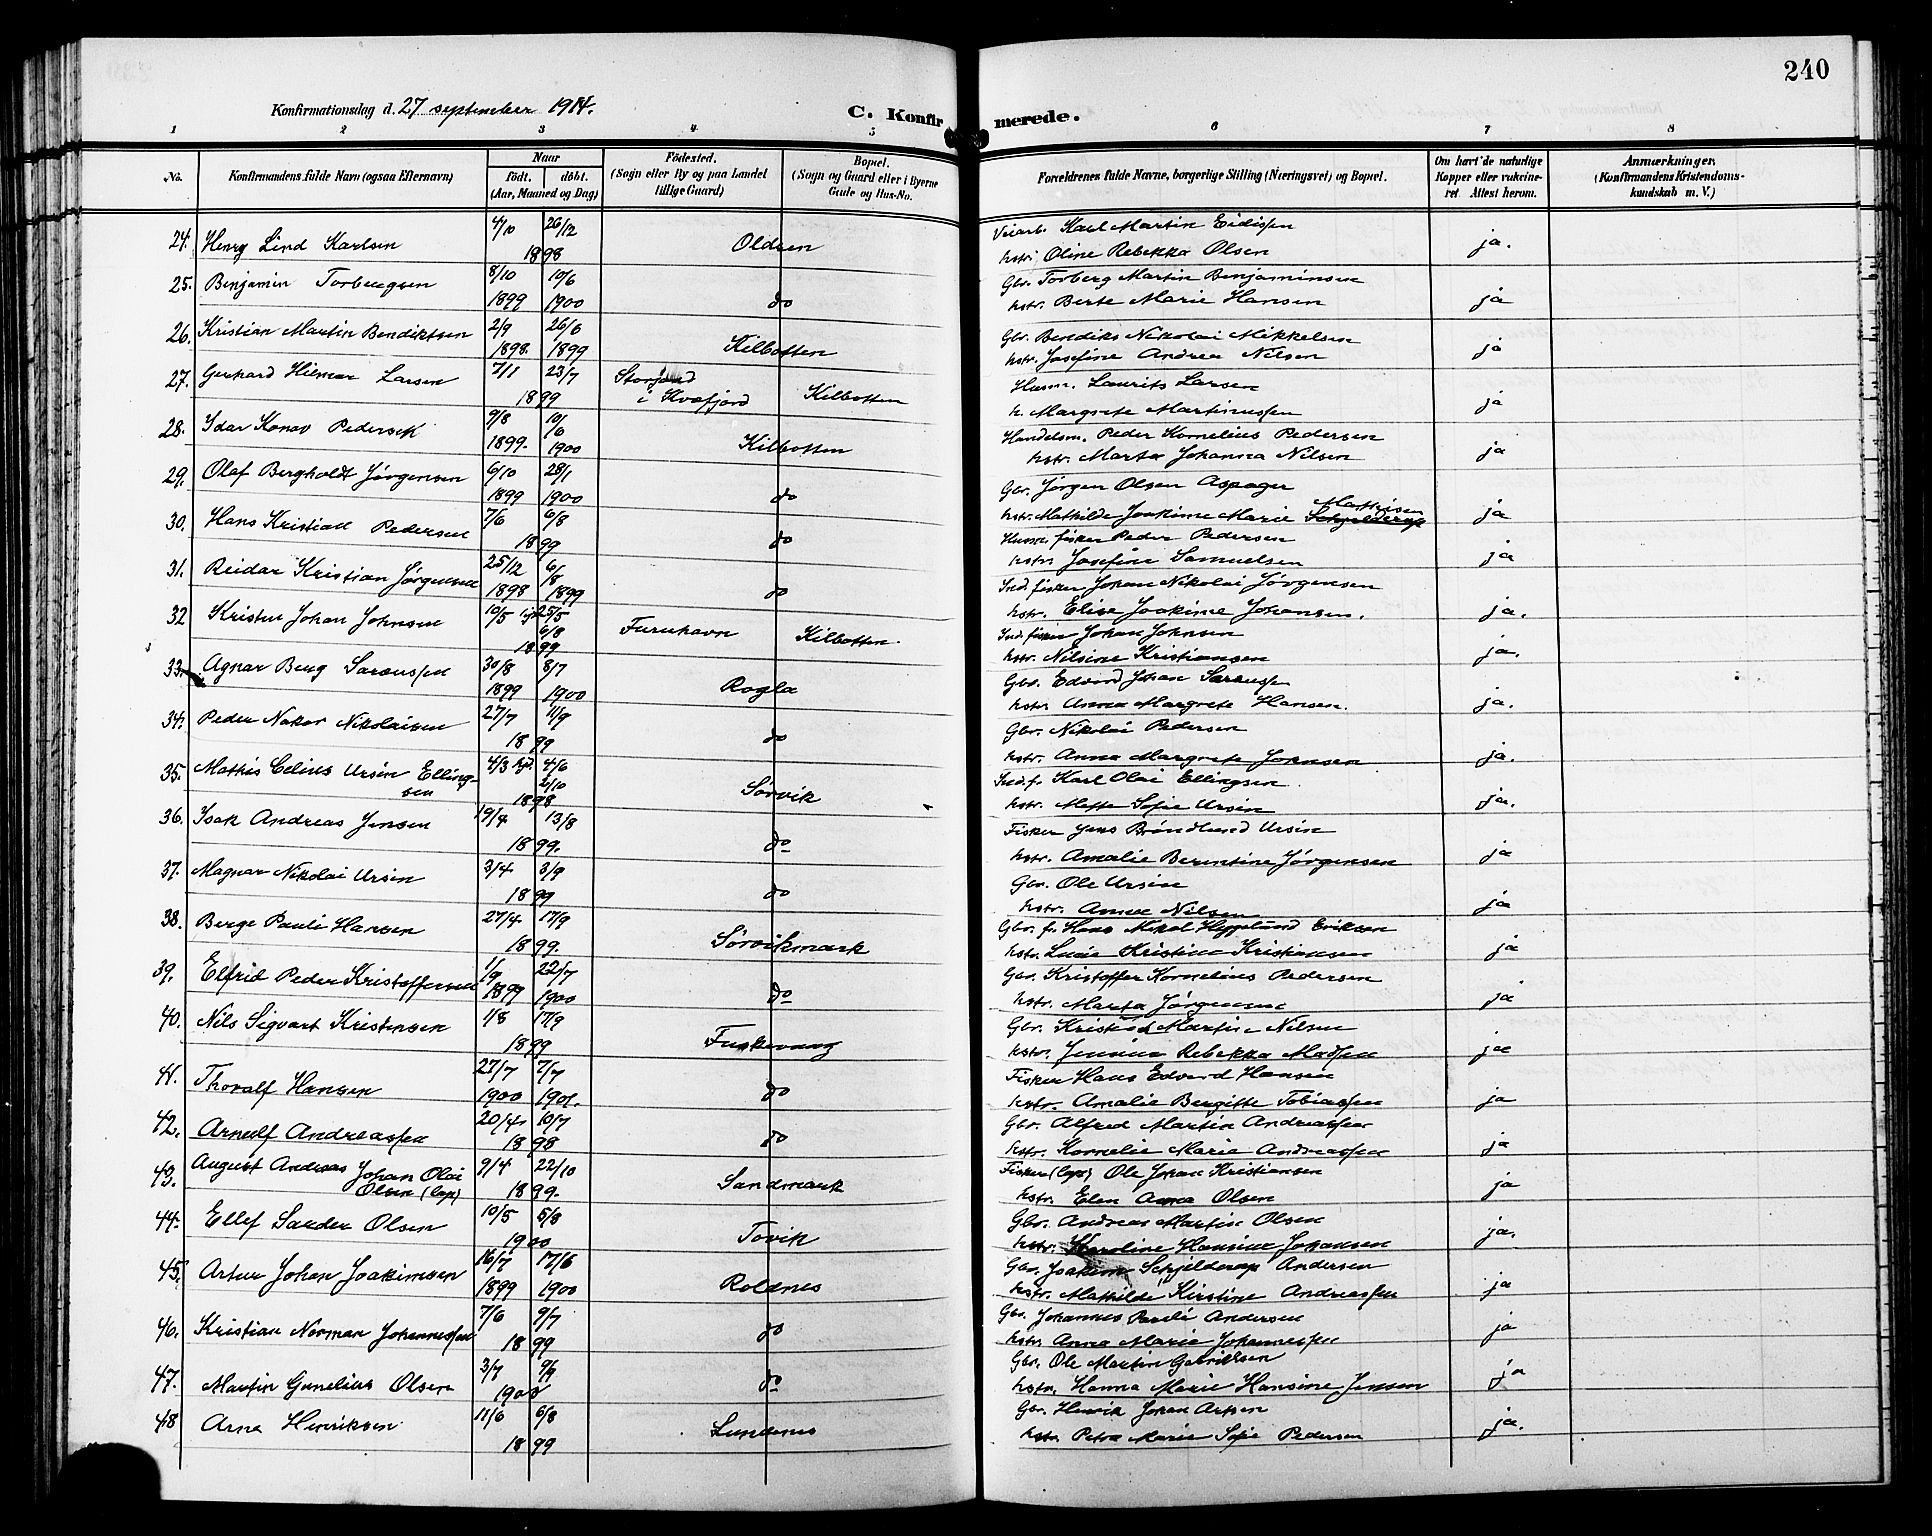 240
Konfirmationsdag d. 27 september 1914.
C. Konfirmerede.
1 2 3 4 5 6 7 8
No. Konfirmandens fulde Navn (ogsaa Efternavn) Naar født. døbt. (Aar, Maaned og Dag) Fødested. (Sogn eller By og paa Landet tillige Gaard) Bopæl. (Sogn og Gaard eller i Byerne Gade og Hus-No. Forældrenes fulde Navne, borgerlige Stilling (Næringsvei) og Bopæl. Om havt de naturlige Kopper eller vakcineret Attest herom. Anmærkninger. (Konfirmandens Kristendomskundskab m. V.)
24. Henry Lind Karlsen 4/10 26/12 1898 Oldren Veiarb. Karl Martin Eidissen
hstr. Oline Rebekka Olsen ja.
25. Benjamin Torbergsen 8/10 1899 10/6 1900 do Gbr. Torberg Martin Benjaminsen
hstr. Berte Marie Hansen ja
26. Kristian Martin Bendiktsen 2/9 1898. 26/6 1899 Kilbotten Gbr. Bendiks Nikolai Mikkelsen
hstr. Josefine Andrea Nilsen ja
27. Gerhard Hilmar Larsen 7/1 23/7 1899 i Kvæfjord Kilbotten Husm. Laurits Larsen
h. Margrete Martinussen ja
28. Idar Konov Pedersen 9/8 1899. 10/6 1900 Kilbotten Handelsm. Peder Kornelius Pedersen
hstr. Marta Johanna Nilsen ja
29. Olaf Bergholdt Jørgensen 6/10 1899 28/1 1900 do Gbr. Jørgen Olsen Aspager
hstr. Mathilde Joakime Marie Schjelderup Mathisen ja
30. Hans Kristian Pedersen 7/6 6/8 1899 do Husm. fisker Peder Pedersen
hstr. Josefine Samuelsen ja
31. Reidar Kristian Jørgensen 25/12 1898 6/8 1899 do Ind. fisker Johan Nikolai Jørgensen
hstr. Elise Joakime Johansen. ja.
32 Kristen Johan Johnsen 10/5 25/5 6/8 1899 Furuhavn Kilbotten. Ind. fisker Johan Johnsen
hstr. Nilsine Kristiansen ja.
33. Agnar Berg Sørenssen 30/8 1899 8/7 1900 Rogla Gbr. Edvard Johan Sørenssen
hstr. Anna Margrete Hansen. ja.
34. Peder Nakar Nikolaisen 27/7 11/9 1899 do Gbr. Nikolai Pedersen
hstr. Anna Margrete Johnsen ja.
35. Mathis Celius Ursin Ellingsen 4/3 4/6 2/10 1898 Sørvik Ind. f. Karl Olai Ellingsen
hstr. Mette Sofie Ursin ja.
36. Isak Andreas Jensen 19/4 13/8 1899. do Fisker Jens Brøndlund Ursin
hstr. Amalie Berentine Jørgensen ja
37. Magnar Nikolai Ursin 3/4 3/9 1899 do Gbr. Ole Ursin
hstr. Anna Nilsen ja
38. Berge Pauli Hansen 27/4 17/9 1899. Sørvikmark Gbr. fr. Hans Nikol Heggelund Eriksen
hstr. Lucie Kristine Kristiansen ja
39. Elfrid Peder Kristoffersen 1/9 1899 22/7 1900 do Gbr. Kristoffer Kornelius Pedersen
hstr. Marta Jørgensen ja
40. Nils Sigvart Kristensen 1/8 17/9 1899 Fuskevaag Gbr. Kristian Martin Nilsen
hstr. Jensine Rebekka Madsen ja
41. Thoralf Hansen 27/7 1900 7/7 1901. do Fisker Hans Edvard Hansen
hstr. Amalie Bergitte Tobiassen ja
42. Arnulf Andreassen 20/4 10/7 1898 do Gbr. Alfred Martin Andreassen
hstr. Kornelie Marie Andreassen ja
43. August Andreas Johan Olai Olsen (lap) 9/4 22/10 1899. Sandmark Fisker (lap) Ole Johan Kristiansen
hstr. Elen Anna Olsen ja
44. Ellef Sander Olsen 10/5 5/8 1900 Tovik Gbr. Andreas Martin Olsen
hstr. Karoline Hansine Johansen ja.
45. Artur Johan Joakimsen 16/7 1899 17/6 1900 Roldnes Gbr. Joakim Schjelderup Andersen
hstr. Mathilde Kirstine Andreassen ja
46. Kristian Norman Johannessen 7/6 9/7 1899 do Gbr. Johannes Pauli Andersen
hstr. Anna Marie Johannessen ja
47. Martin Gunelius Olsen 3/7 9/9 1900 do Gbr. Ole Martin Gabrielsen
hstr. Hanna Marie Hansine Jensen ja
48 Arne Henriksen 11/6 6/8 1899 Lundenes Gbr. Henrik Johan Artsen
hstr. Petra Marie Sofie Pedersen ja.